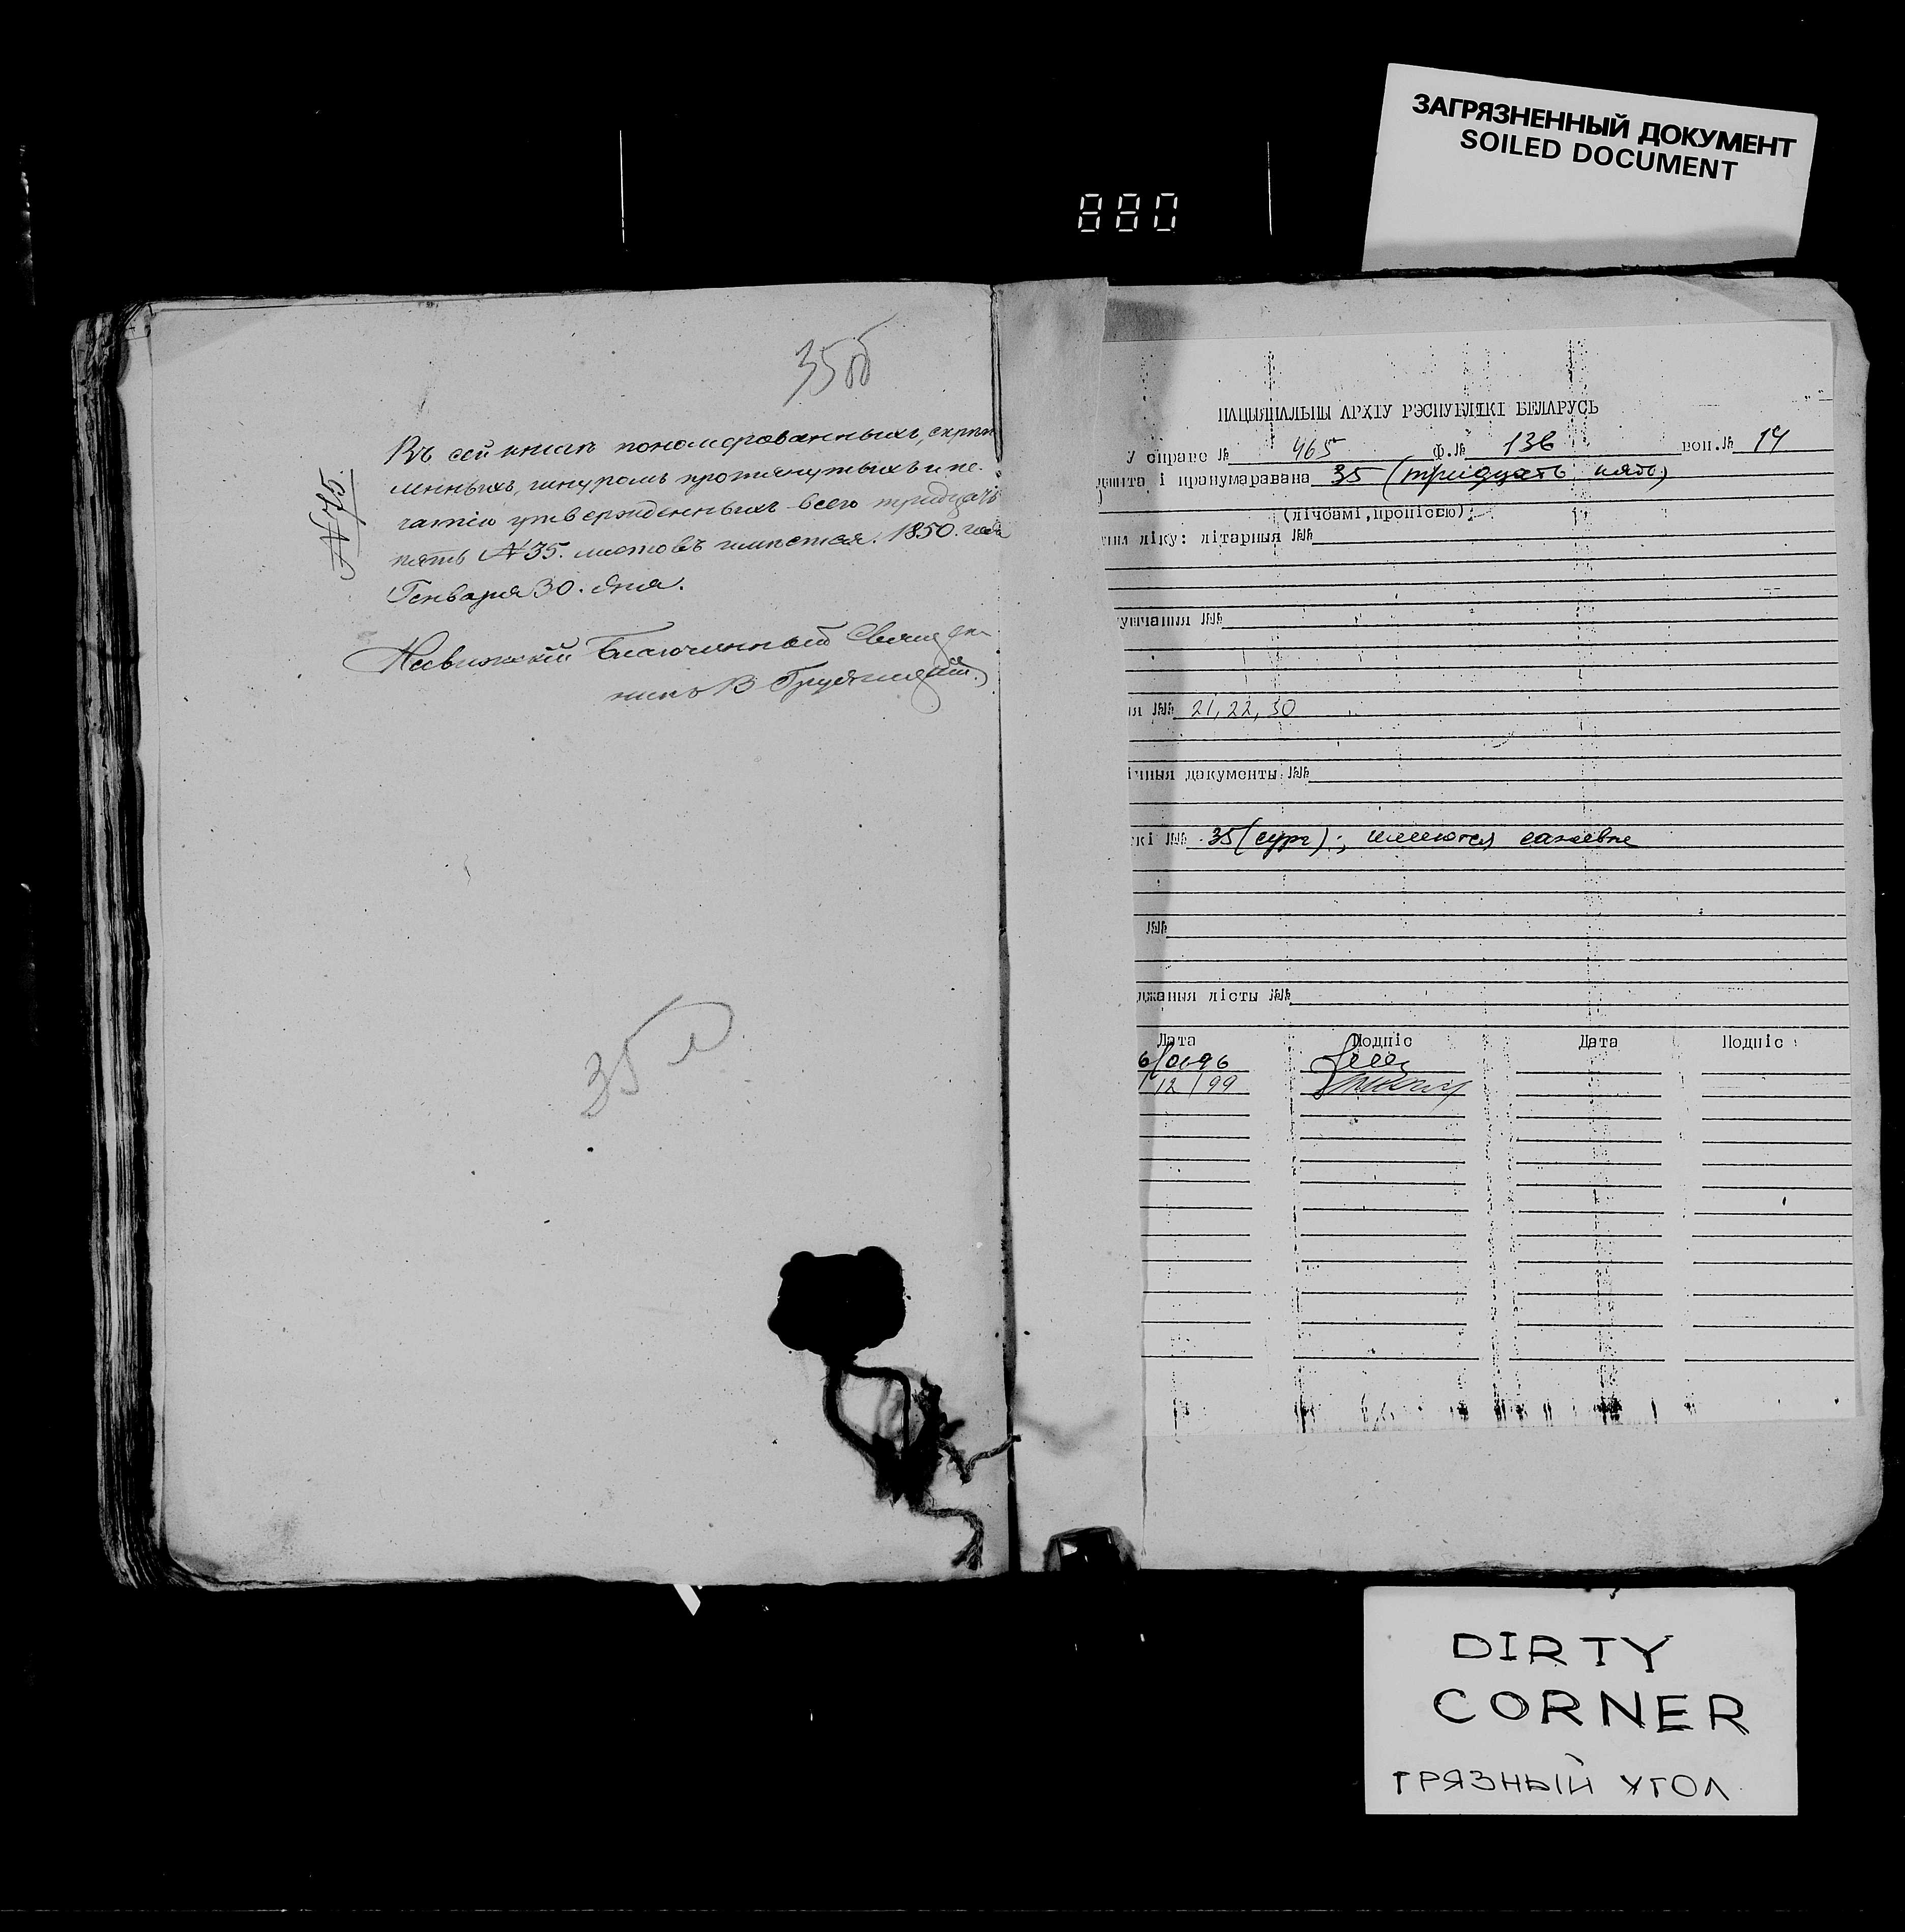 ЗАГРЯЗНЕННЫЙ ДОКУМЕНТ
SOILED DOCUMENT
880
35об
№ 75.
Въ сей книгѣ пономерованныхъ, скрѣп
ленныхъ, шнуромъ протянутыхъ и пе-
чатію утвержденныхъ всего тридцать
пять №35. листовъ имѣется. 1850. года
Генваря 30. дня.
Несвижскій Благочинный Священ
никъ В
35 л
НАЦЫЯНАЛЬНЫ АРХІУ РЭСПУБЛІКІ БЕЛАРУСЬ
У справе № 465 ф.№ 136 воп.№ 14
і пранумаравана 35 (тридцать пять)
(лічбамі, пропіссю)
ліку: літарныя №№
№№
№№ 21, 22, 30
дакументы №№
№№ 35 (сург); имеются
№№
лісты №№
Дата Подпіс Дата Подпіс
12/99
DIRTY
CORNER
ГРЯЗНЫЙ УГОЛ